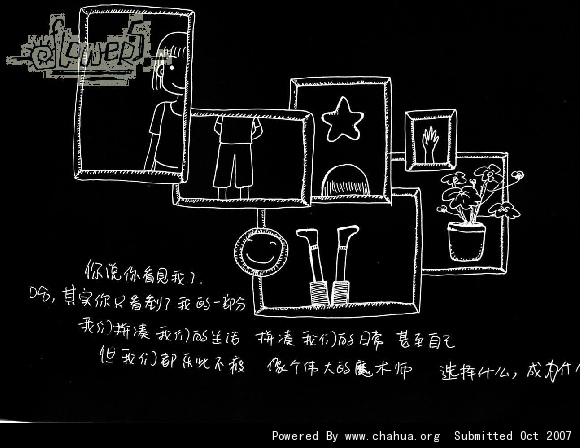 FLOWER
你说你看见我了.
哈,其实你只看到了我的一部分
我们拼凑我们的生活 拼凑我们的日常 甚至自己
但我们都乐此不疲 像个伟大的魔术师 选择什么,成为什
Powered By www.chahua.org Submitted Oct 2007